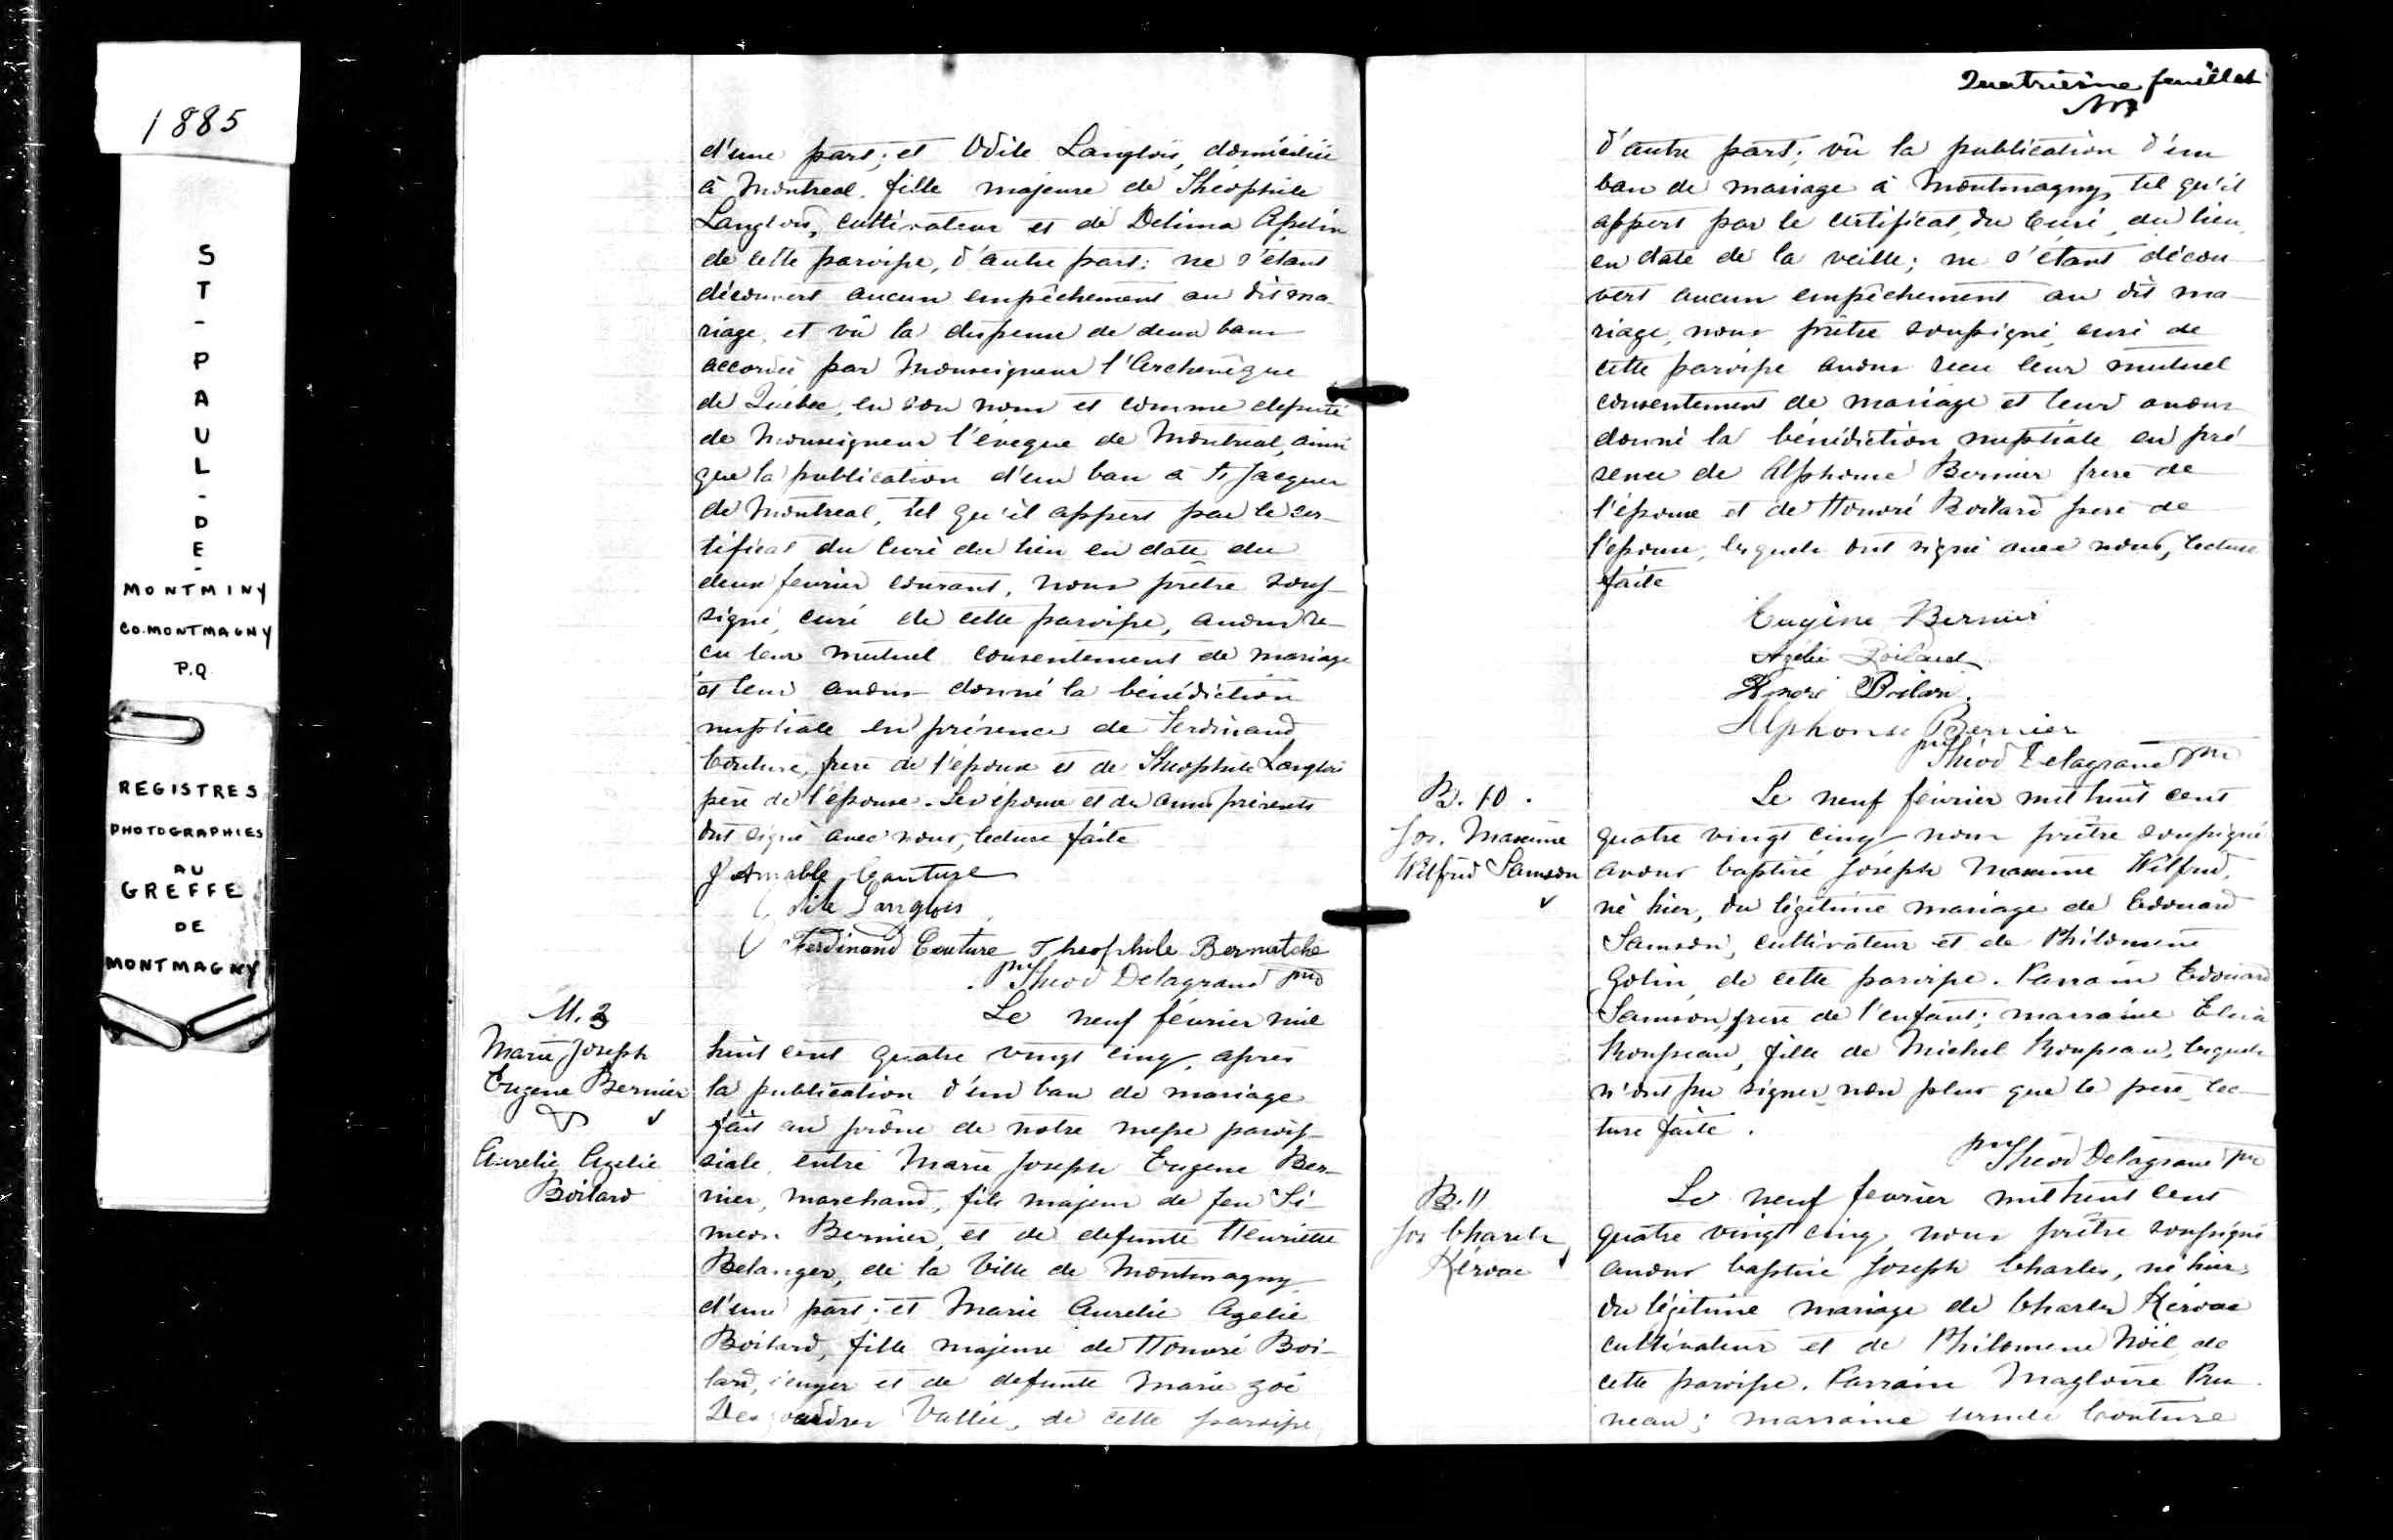 1885
ST-PAUL-DE-
MONTMINY
CO. MONTMAGNY
P.Q.
REGISTRES
PHOTOGRAPHIES
AU
GREFFE
DE
MONTMAGNY
d'une part; et Odile Langlois, domiciliée
à Montreal, fille majeure de Théophile
Langlois, cultivateur et de Delima Asselin
de cette paroisse, d'autre part: ne s'étant
découvert aucun empêchement au dit ma-
riage, et vû la dispense de deux bans
accordée par Monseigneur l'Archevêque
de Québec, en son nom et comme député
de Monseigneur l'évêque de Montreal, ainsi
que la publication d'un ban à St Jacques
de Montreal, tel qu'il appert par le cer-
tificat du Curé du lieu en date du
deux fevrier courant, nous prêtre sous-
signé, curé de cette paroisse, avons re-
cu leur mutuel consentement de mariage
et leur avons donné la bénédiction
nuptiale en présence de Ferdinand
Couture, frere de l'époux et de Theophile Langlois
père de l'épouse. Les époux et des amis présents
ont signé avec nous, lecture faite
J Amable Couture
Odile Langlois
Ferdinand Couture Theophile Bernatché
Theod Delagrave ptre
M. 3
Marie Joseph
Eugene Bernier
&
Aurelie Azelie
Boilard
Le neuf février mil
huit cent quatre vingt cinq, après
la publication d'un ban de mariage
fait au prône de notre messe parois-
siale, entre Marie Joseph Eugene Ber-
nier, marchand, fils majeur de feu Si-
meon Bernier, et de defunte Henriette
Belanger, de la Ville de Montmagny
d'une part; et Marie Aurelie Azelie
Boilard, fille majeure de Honoré Boi-
lard, écuyer et de defunte Marie Zoé
Vallée, de cette paroisse
Quatrième feuillet
d'autre part; vû la publication d'un
ban de mariage à Montmagny, tel qu'il
appert par le certificat du Curé du lieu,
en date de la veille; ne s'étant décou-
vert aucun empêchement au dit ma-
riage, nous prêtre soussigné, curé de
cette paroisse avons recu leur mutuel
consentement de mariage et leur avons
donné la bénédiction nuptiale en pré
sence de Alphonse Bernier frere de
l'époux et de Honoré Boilard pere de
l'épouse, lesquels ont signé avec nous, lecture
faite
Eugène Bernier
Azélie Boilard
Honoré Boilard
Alphonse Bernier
Théod Delagrave ptre
B. 10.
Jos. Maxime
Wilfrid Samson
Le neuf février mil huit cent
quatre vingt cinq nous prêtre soussigné
avons baptisé Joseph Maxime Wilfrid,
né hier, du légitime mariage de Edouard
Samson, cultivateur et de Philomène
Gosselin, de cette paroisse. Parrain Edouard
Samson, frere de l'enfant; marraine
Rousseau, fille de Michel Rousseau, lesquels
n'ont pu signer non plus que le père, lec-
ture faite.
Theod Delagrave ptre
B. 11
Jos Charles
Kéroac
Le neuf fevrier mil huit cent
quatre vingt cinq, nous prêtre soussigné
avons baptisé Joseph Charles, né hier,
du légitime mariage de Charles Kéroac
cultivateur et de Philomene Noël, de
cette paroisse. Parrain Magloire Bru-
neau; marraine Ursule Couture